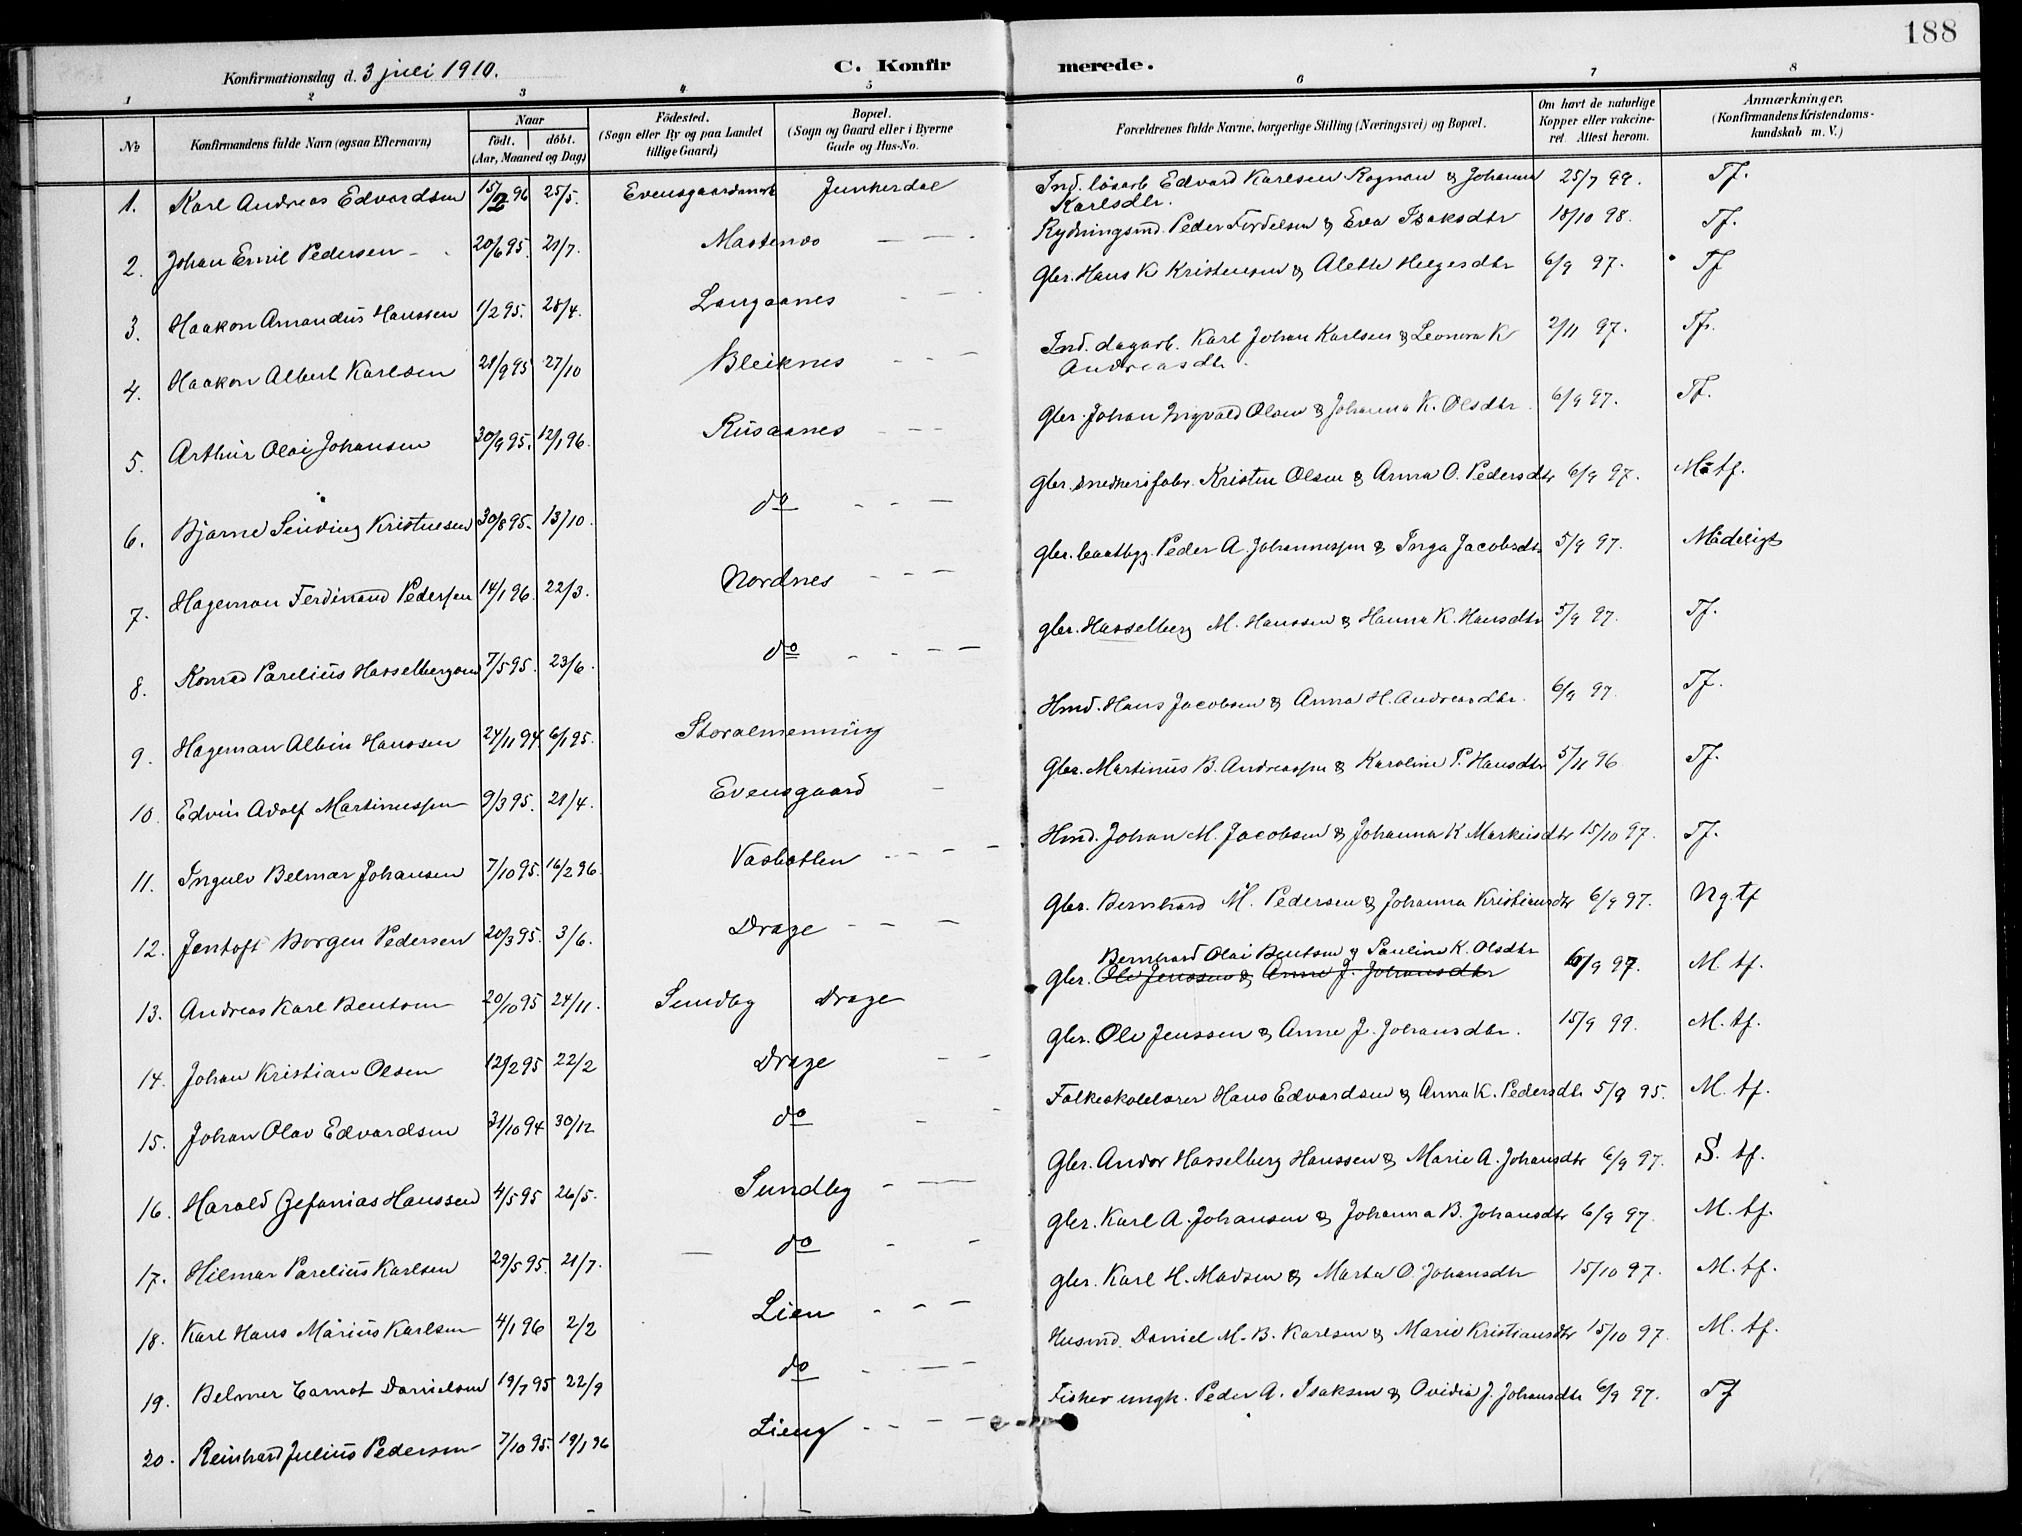 188
Konfirmationsdag d. 3 juli 1910.
C. Konfirmerede.
1 2 3 4 5 6 7 8
No
Konfirmandens fulde Navn (ogsaa Efternavn)
Naar
født. døbt.
(Aar, Maaned og Dag)
Fødested.
(Sogn eller By og paa Landet
tillige Gaard)
Bopæl.
(Sogn og Gaard eller i Byerne
Gade og Hus-No.
Forældrenes fulde Navne, borgerlige Stilling (Næringsvei) og Bopæl.
Om havt de naturlige
Kopper eller vakcine-
ret. Attest herom.
Anmærkninger.
(Konfirmandens Kristendoms-
kundskab m. V.)
1. Karl Andreas Edvardsen 15/2 96 25/5. Evensgaardsmark Junkerdal Ind. løsarb. Edvard Karlsen Rognan & Johanna 25/7 99. Tf.
Karlsdtr.
2. Johan Emil Pedersen 20/6 95. 21/7. Mastenos Rydningsmd. Peder Fordelsen & Eva Isaksdtr 18/10 98. Tf.
3. Haakon Amandus Hanssen 1/2 95. 28/4. Langaanes Gbr. Hans K Kristensen & Alette Helgesdtr 6/9 97. Tf
4. Haakon Albert Karlsen 21/9 95 27/10 Bleiknes Ind. dagarb. Karl Johan Karlsen & Leonora K 2/11 97. Tf.
Andreasdtr.
5. Arthur Olai Johansen 30/9 95. 12/1 96. Rusaanes Gbr. Johan Ingvald Olsen & Johanna K. Olsdtr. 6/9 97. Tf.
6. Bjarne Sinding Kristensen 30/8 95. 13/10. do Gbr. snedkersfabr. Kristen Olsen & Anna O. Pedersdtr 6/9 97. M tf.
7. Hageman Ferdinand Pederssen 14/1 96. 22/3. Nordnes Gbr. baatbyg. Peder A. Johannessen & Inga Jacobsdtr 5/9 97. Mådeligt
8. Konrad Parelius Hasselbergsen 7/5 95. 23/6. do Gbr. Hasselberg M. Hanssen & Hanna K. Hansdtr 5/9 97. Tf.
9. Hageman Albin Hanssen 24/11 94. 6/1 95. Storalmenning Hmd. Hans Jacobsen & Anna H. Andreasdtr. 6/9 97. Tf.
10. Edvin Adolf Martinussen 9/3 95. 21/4. Evensgaard Gbr. Martinus B. Andreassen & Karoline P. Hansdtr 5/11 96 Tf.
11. Ingulv Belmar Johansen 7/10 95. 16/2 96. Vasbotten Hmd. Johan M. Jacobsen & Johanna K Markusdtr 15/10 97. Tf.
12. Jentoft Borgen Pedersen 20/3 95. 3/6. Drage Gbr. Bernhard M. Pedersen & Johanna Kristiansdtr 6/9 97. Ng. tf
Bernhard Olai Bentsen & Pauline K. Olsdtr
13. Andreas Karl Bentsen 20/10 95 24/11. Sundby Drage Gbr. Ole Jenssen & Anne J. Johansdtr 6/9 97. M. tf.
14. Johan Kristian Olsen 12/2 95 22/2 Drage Gbr. Ole Jenssen & Anne J. Johansdtr. 15/9 99. M. tf.
15. Johan Olav Edvardsen 31/10 94 30/12 do Folkeskolelærer Hans Edvardsen & Anna K. Pedersdtr 5/9 95. M. tf.
16. Harald Zefanias Hanssen 4/5 95 26/5. Sundby Gbr. Andor Hasselberg Hanssen & Marie A. Johansdtr 6/9 97. S. tf.
17. Hilmar Parelius Karlsen 29/5 95. 21/7. do Gbr. Karl A. Johansen & Johanna B. Johansdtr 6/9 97. M. tf.
18. Karl Hans Mårius Karlsen 4/1 96 2/2 Lien Gbr. Karl H. Madsen & Marta O. Johansdtr 15/10 97. M. tf.
19. Belmer Carnot Danielsen 19/7 95 22/9 do Husmd. Daniel M. B. Karlsen & Marie Kristiansdtr 15/10 97. M. tf.
20. Reinhard Julius Pedersen 7/10 95. 19/1 96 Lieng Fisker ungk. Peder A. Isaksen & Ovidia J. Johansdtr 6/9 97. Tf